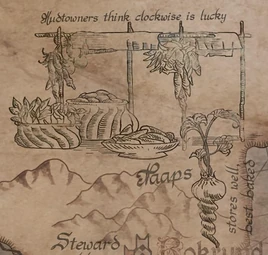 Mudtowners think clockwise is lucky
Taaps
stores well,
best baked
Steward